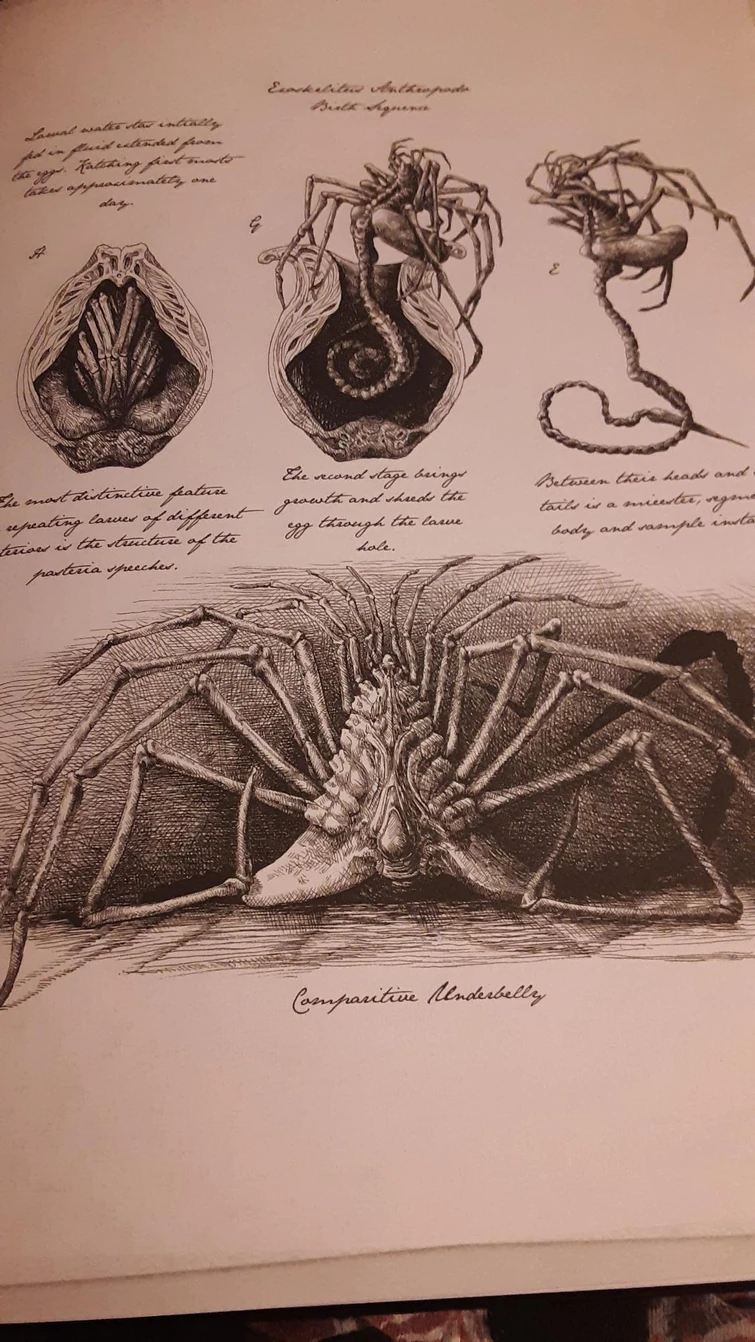 Exoskelitus Anthropoda
Birth Sequence
Larval water stas intially
fed in fluid extended from
the eggs. Hatching first
takes approximately one
day.
A
G
E
The most distinctive feature
repeating larves of different
teriors is the structure of the
pasteria speeches.
The second stage brings
growth and shreds the
egg through the larve
hole.
Between their heads and
tails is a micester, segme
body and sample insta
Comparitive Underbelly